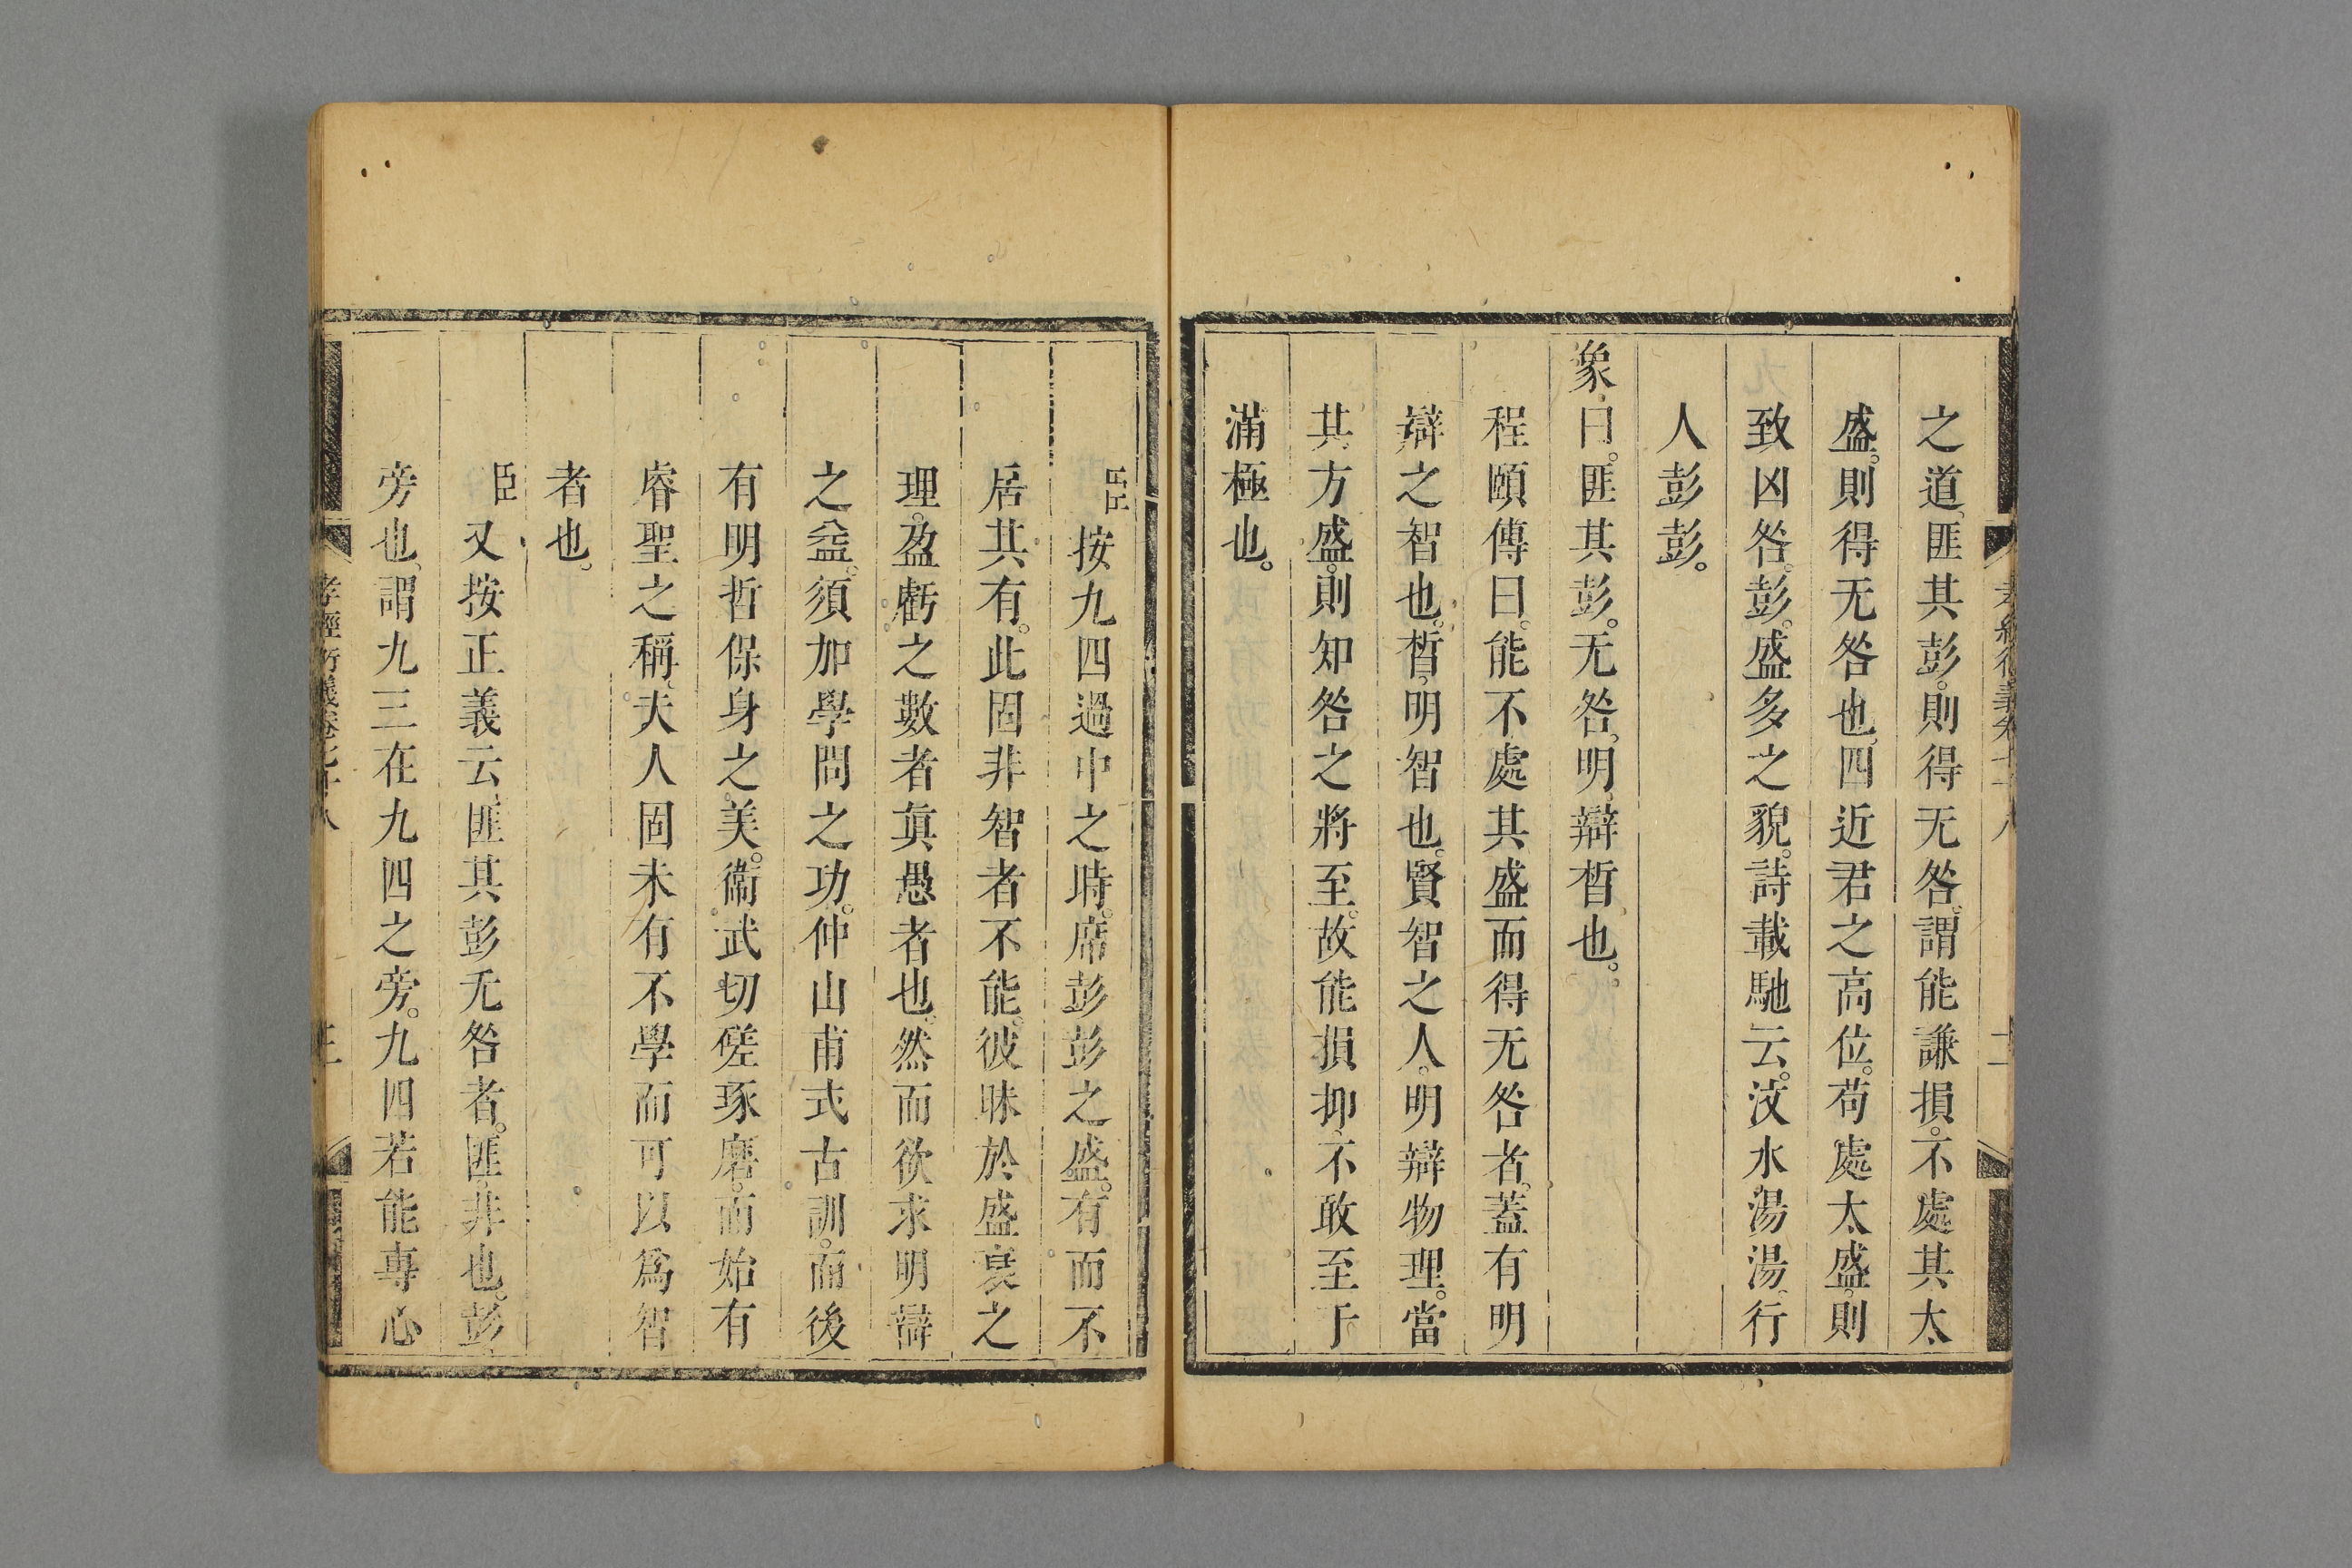 之道。匪其彭。則得无咎。謂能謙損。不處其太
盛。則得无咎也。四近君之高位。苟處太盛。則
致凶咎。彭。盛多之貌。詩載馳云。汶水湯湯。行
人彭彭。
象曰。匪其彭。无咎。明辯晳也。
程頤傳曰。能不處其盛而得无咎者。蓋有明
辯之智也。晳。明智也。賢智之人。明辯物理。當
其方盛。則知咎之將至。故能損抑。不敢至于
滿極也。
臣按九四過中之時。席彭彭之盛。有而不
居其有。此固非智者不能。彼昧於盛衰之
理。盈虧之數者眞愚者也。然而欲求明辯
之益。須加學問之功。仲山甫式古訓。而後
有明哲保身之美。衞武切磋琢磨。而始有
睿聖之稱。夫人固未有不學而可以爲智
者也。
臣又按正義云。匪其彭无咎者。匪。非也。彭
旁也。謂九三在九四之旁。九四若能專心
孝經衍義卷七十八